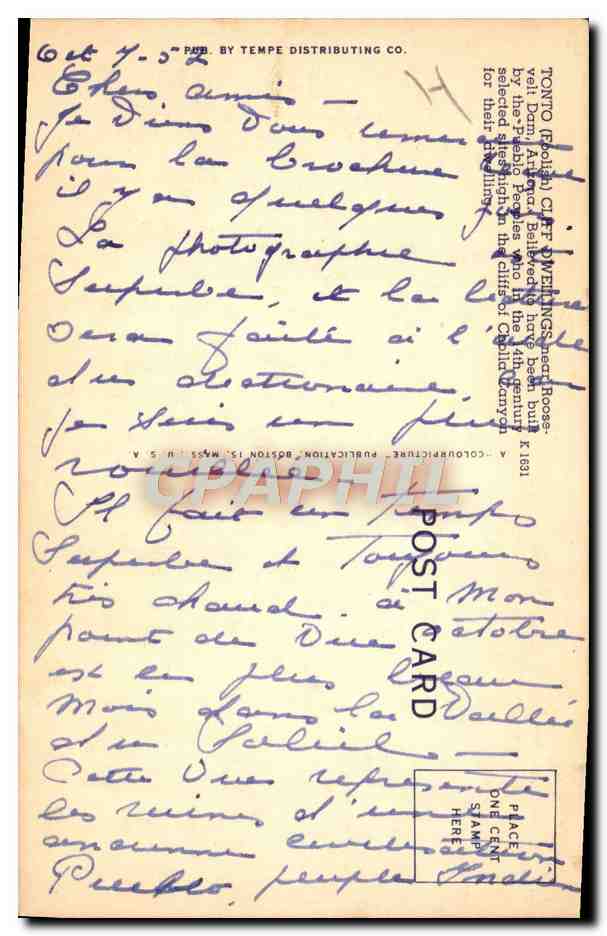 Oct 7-52
PUB. BY TEMPE DISTRIBUTING CO.
Chers amis —
Je viens vous remercie
pour la brochure
il y a quelques
La photographie
superbe, et la lecture
sera faite à l'aide
du dictionaire,
je suis un peu
rouillée.
Il fait un temps
superbe et toujours
très chaud. à mon
point de vue octobre
est le plus beau
mois dans la Vallée
du Soleil —
Cette vue représente
les ruines d'une
ancienne civilisation
Pueblo, peuple Indien
TONTO (Foolish) CLIFF DWELLINGS, near Roose-
velt Dam, Arizona. Believed to have been built
by the Pueblo Peoples who in the 14th century
selected sites high in the cliffs of Cholla Canyon
for their dwelling.
K 1631
A "COLOURPICTURE" PUBLICATION, BOSTON 15, MASS., U. S. A
CPAPHIL
POST CARD
PLACE
ONE CENT
STAMP
HERE